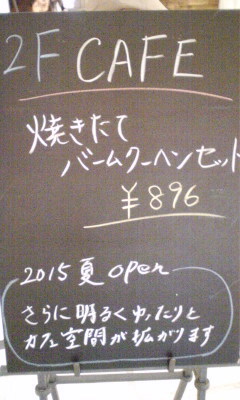 2F CAFE
焼きたて
バームクーヘンセット
¥896
2015 夏 open
さらに明るくゆったりと
カフェ空間が拡がります